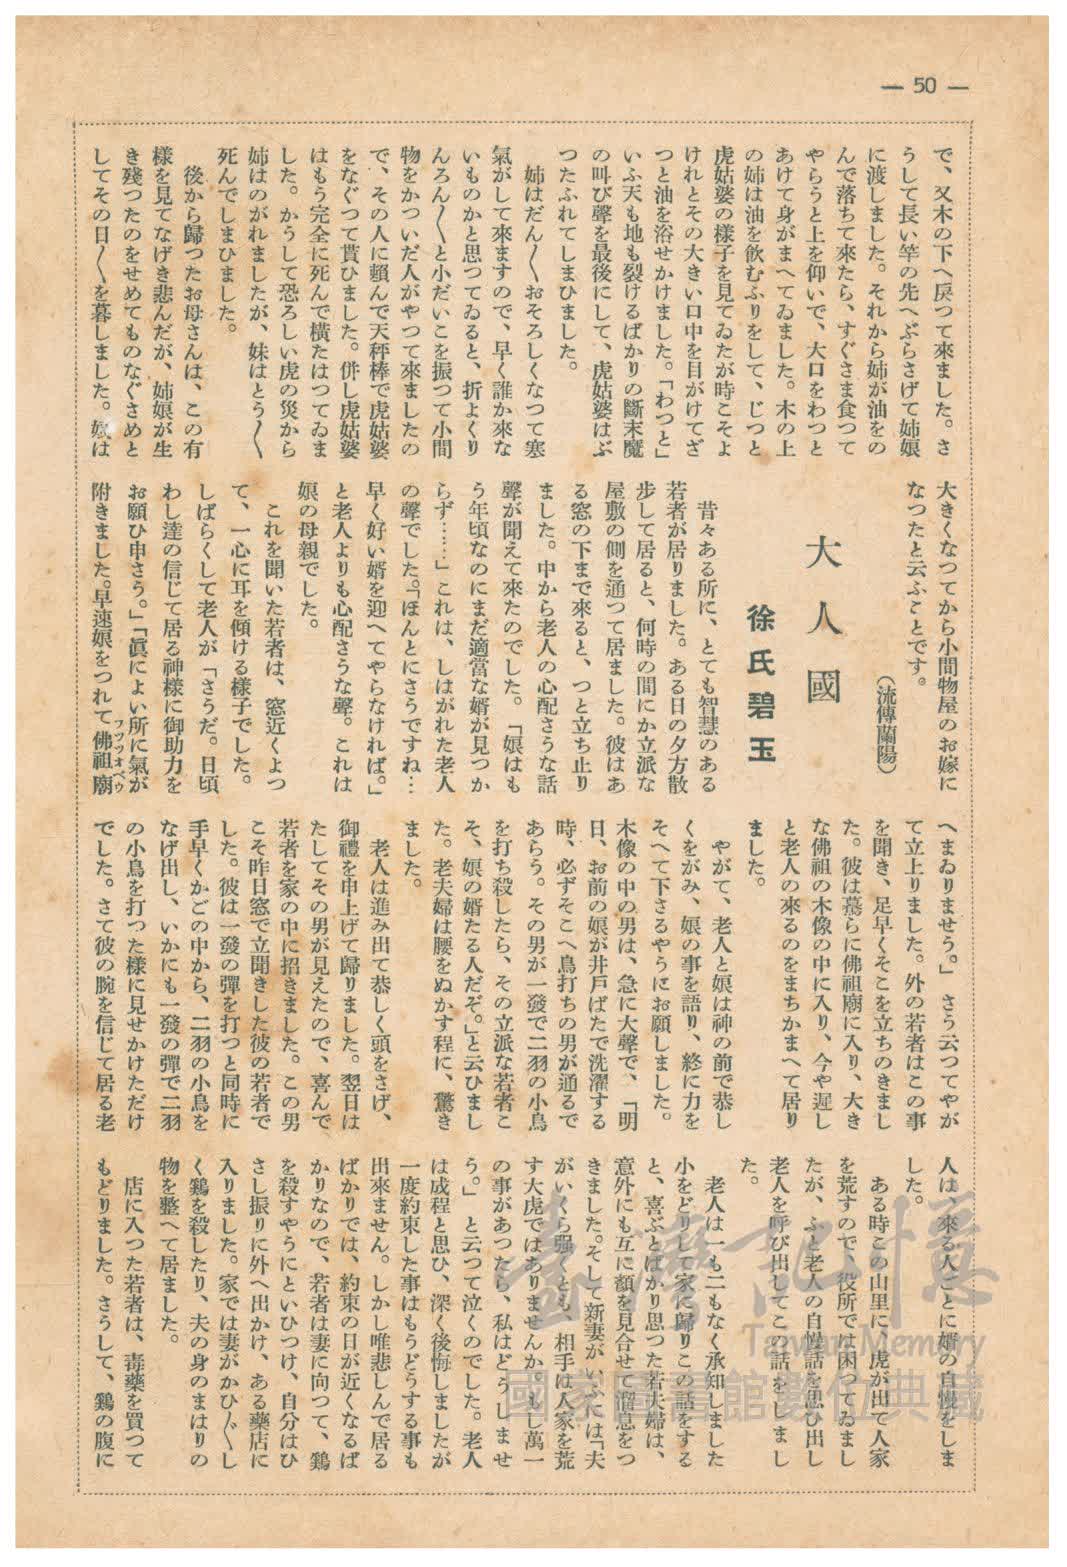 — 50 —
で、又木の下へ戾つて來ました。さ
うして長い竿の先へぶらさげて姉娘
に渡しました。それから姉が油をの
んで落ちて來たら、すぐさま食つて
やらうと上を仰いで、大口をわつと
あけて身がまへてゐました。木の上
の姉は油を飮むふりをして、じつと
虎姑婆の樣子を見てゐたが時こそよ
けれとその大きい口中を目がけてざ
つと油を浴せかけました。「わつと」
いふ天も地も裂けるばかりの斷末魔
の叫び聲を最後にして、虎姑婆はぶ
つたふれてしまひました。
姉はだん〱おそろしくなつて寒
氣がして來ますので、早く誰か來な
いものかと思つてゐると、折よくり
んろん〱と小だいこを振つて小間
物をかついだ人がやつて來ましたの
で、その人に賴んで天秤棒で虎姑婆
をなぐつて貰ひました。併し虎姑婆
はもう完全に死んで橫たはつてゐま
した。かうして恐ろしい虎の災から
姉はのがれましたが、妹はとう〱
死んでしまひました。
後から歸つたお母さんは、この有
樣を見てなげき悲んだが、姉娘が生
き殘つたのをせめてものなぐさめと
してその日〱を暮しました。娘は
大きくなつてから小間物屋のお嫁に
なつたと云ふことです。
（流傳蘭陽）
大人國
徐氏碧玉
昔々ある所に、とても智慧のある
若者が居りました。ある日の夕方散
步して居ると、何時の間にか立派な
屋敷の側を通つて居ました。彼はあ
る窓の下まで來ると、つと立ち止り
ました。中から老人の心配さうな話
聲が聞えて來たのでした。「娘はも
う年頃なのにまだ適當な婿が見つか
らず……」これは、しはがれた老人
の聲でした。「ほんとにさうですね…
早く好い婿を迎へてやらなければ。」
と老人よりも心配さうな聲。これは
娘の母親でした。
これを聞いた若者は、窓近くよつ
て、一心に耳を傾ける樣子でした。
しばらくして老人が「さうだ。日頃
わし達の信じて居る神樣に御助力を
お願ひ申さう。」「眞によい所に氣が
附きました。早速娘をつれて佛祖廟
フツツオベウ
へまゐりませう。」さう云つてやが
て立上りました。外の若者はこの事
を聞き、足早くそこを立ちのきまし
た。彼は驀らに佛祖廟に入り、大き
な佛祖の木像の中に入り、今や遲し
と老人の來るのをまちかまへて居り
ました。
やがて、老人と娘は神の前で恭し
くをがみ、娘の事を語り、終に力を
そへて下さるやうにお願しました。
木像の中の男は、急に大聲で、「明
日、お前の娘が井戶ばたで洗濯する
時、必ずそこへ鳥打ちの男が通るで
あらう。その男が一發で二羽の小鳥
を打ち殺したら、その立派な若者こ
そ、娘の婿たる人だぞ。」と云ひまし
た。老夫婦は腰をぬかす程に、驚き
ました。
老人は進み出て恭しく頭をさげ、
御禮を申上げて歸りました。翌日は
たしてその男が見えたので、喜んで
若者を家の中に招きました。この男
こそ昨日窓で立聞きした彼の若者で
した。彼は一發の彈を打つと同時に
手早くかごの中から、二羽の小鳥を
なげ出し、いかにも一發の彈で二羽
の小鳥を打つた樣に見せかけただけ
でした。さて彼の腕を信じて居る老
人は、來る人ごとに婿の自慢をしま
した。
ある時この山里に、虎が出て人家
を荒すので、役所では困つてゐまし
たが、ふと老人の自慢話を思ひ出し
老人を呼び出してこの話をしまし
た。
老人は一も二もなく承知しました
小をどりして家に歸りこの話をする
と、喜ぶとばかり思つた若夫婦は、
意外にも互に顏を見合せて溜息をつ
きました。そして新妻がいふには「夫
がいくら强くとも、相手は人家を荒
す大虎ではありませんか。もし萬一
の事があつたら、私はどうしませ
う。」と云つて泣くのでした。老人
は成程と思ひ、深く後悔しましたが
一度約束した事はもうどうする事も
出來ません。しかし唯悲しんで居る
ばかりでは、約束の日が近くなるば
かりなので、若者は妻に向つて、鷄
を殺すやうにといひつけ、自分はひ
さし振りに外へ出かけ、ある藥店に
入りました。家では妻がかひ〲し
く鷄を殺したり、夫の身のまはりの
物を整へて居ました。
店に入つた若者は、毒藥を買つて
もどりました。さうして、鷄の腹に
臺灣記憶
Taiwan Memory
國家圖書館數位典藏